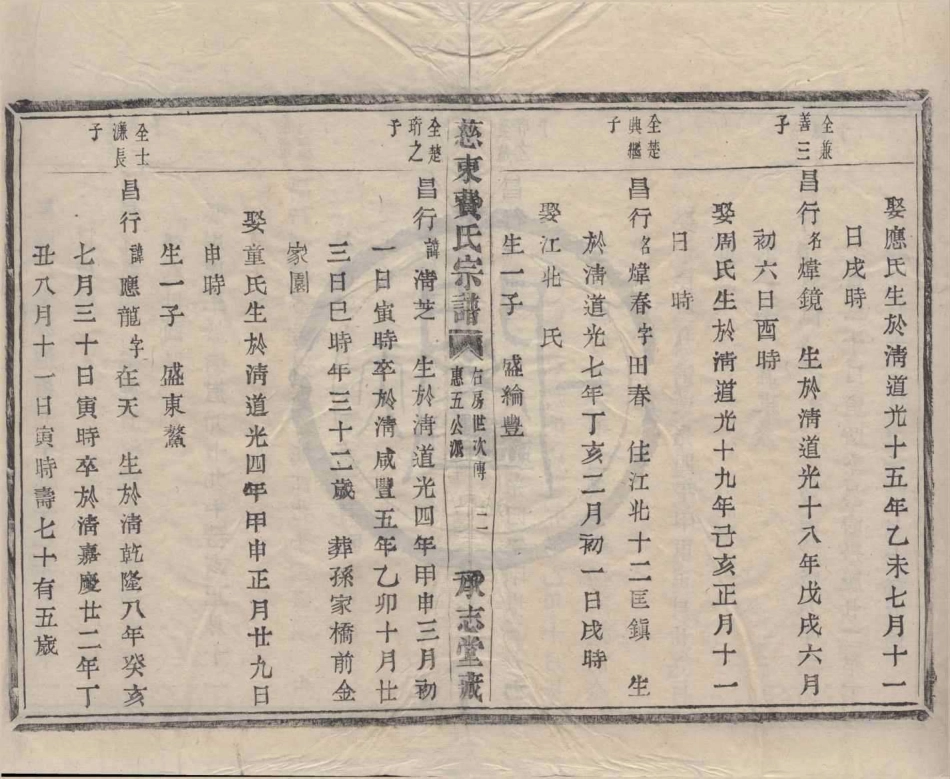 娶應氏生於清道光十五年乙未七月十一
日戌時
仝兼
善三
子
昌行名煒鏡　生於清道光十八年戊戌六月
初六日酉時
娶周氏生於清道光十九年己亥正月十一
日　時
仝楚
典繼
子
昌行名煒春字田春　住江北十二匡鎮　生
於清道光七年丁亥二月初一日戌時
娶江北　氏
生一子　盛綸豐
慈東費氏宗譜　右房世次傳　惠五公派　二　承志堂藏
仝楚
珩之
子
昌行諱淸芝　生於清道光四年甲申三月初
一日寅時卒於清咸豐五年乙卯十月廿
三日巳時年三十二歲　葬孫家橋前金
家園
娶童氏生於清道光四年甲申正月廿九日
申時
生一子　盛東鰲
仝士
濂長
子
昌行諱應龍字在天　生於清乾隆八年癸亥
七月三十日寅時卒於清嘉慶廿二年丁
丑八月十一日寅時壽七十有五歲